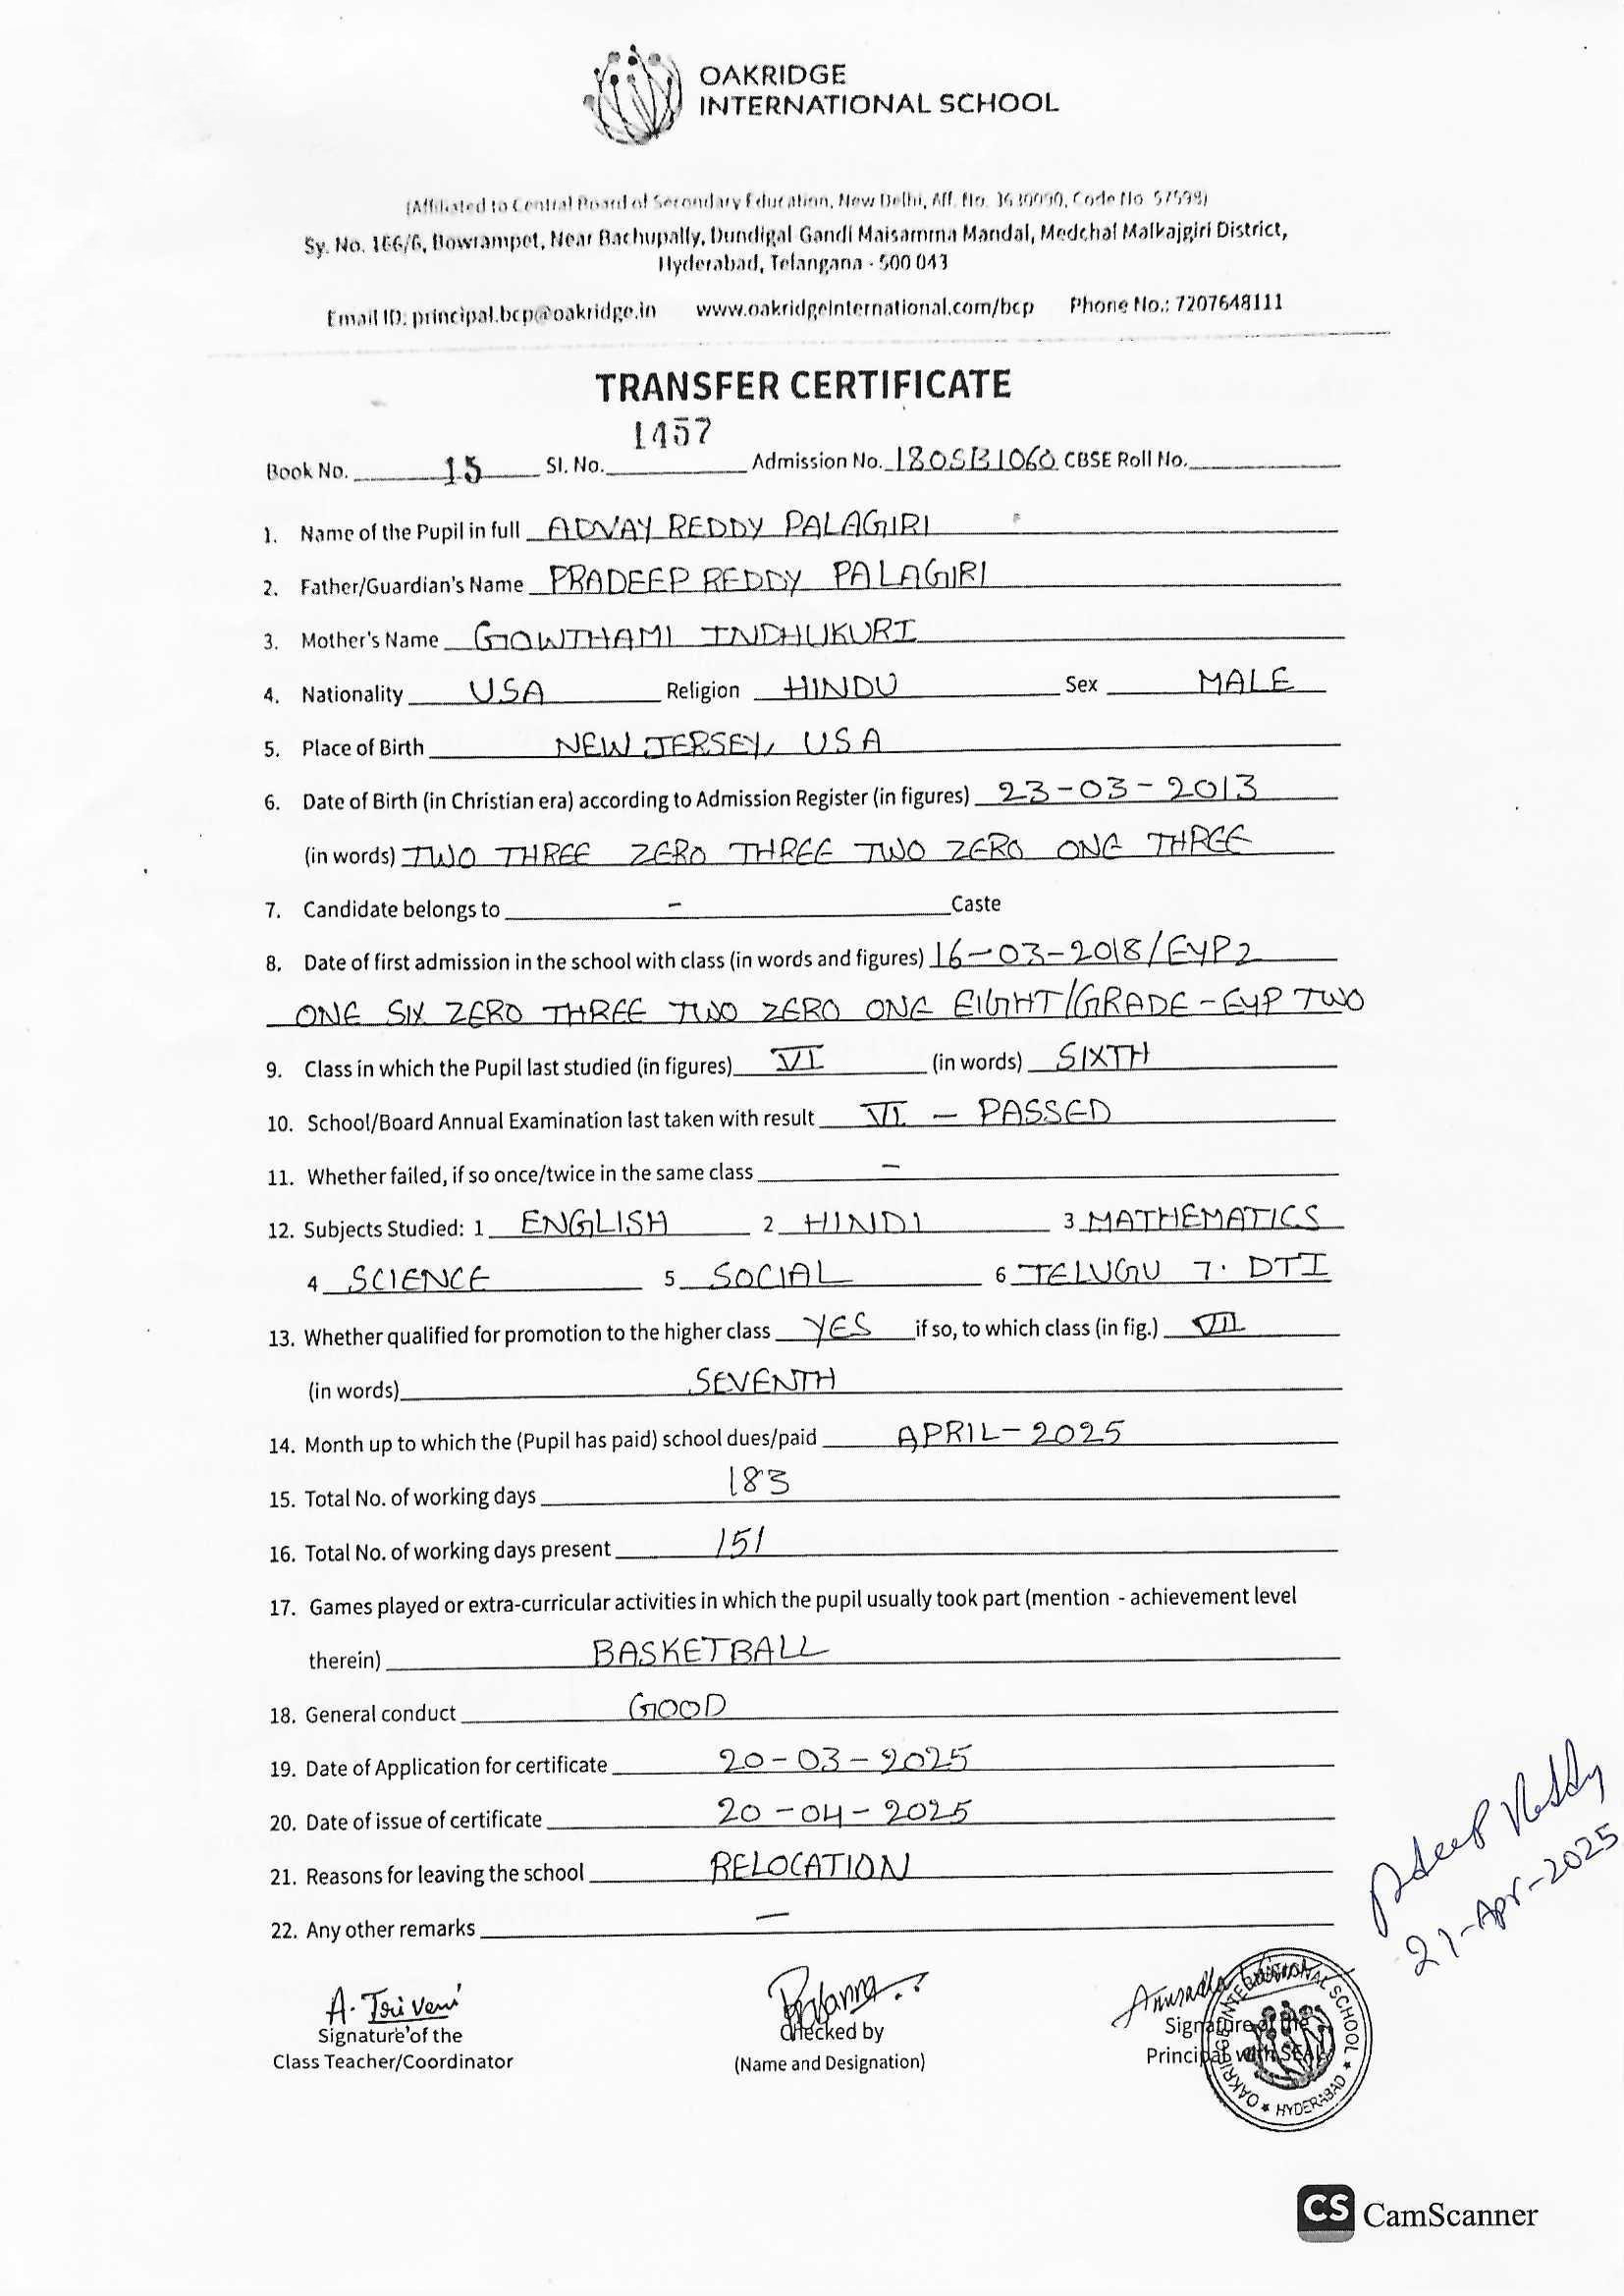 OAKRIDGE
INTERNATIONAL SCHOOL
(Affiliated to Central Board of Secondary Education, New Delhi, Aff. No. 3630090, Code No. 57598)
Sy. No. 166/6, Bowrampet, Near Bachupally, Dundigal Gandi Maisamma Mandal, Medchal Malkajgiri District,
Hyderabad, Telangana - 500 043
Email ID: principal.bcp@oakridge.in www.oakridgeinternational.com/bcp Phone No.: 7207648111
TRANSFER CERTIFICATE
Book No. 15 Sl. No. 1457 Admission No. 180SB1060 CBSE Roll No.
1. Name of the Pupil in full ADVAY REDDY PALAGIRI
2. Father/Guardian's Name PRADEEP REDDY PALAGIRI
3. Mother's Name GOWTHAMI INDHUKURI
4. Nationality USA Religion HINDU Sex MALE
5. Place of Birth NEW JERSEY, USA
6. Date of Birth (in Christian era) according to Admission Register (in figures) 23-03-2013
(in words) TWO THREE ZERO THREE TWO ZERO ONE THREE
7. Candidate belongs to - Caste
8. Date of first admission in the school with class (in words and figures) 16-03-2018/EYP2
ONE SIX ZERO THREE TWO ZERO ONE EIGHT/GRADE-EYP TWO
9. Class in which the Pupil last studied (in figures) VI (in words) SIXTH
10. School/Board Annual Examination last taken with result VI - PASSED
11. Whether failed, if so once/twice in the same class -
12. Subjects Studied: 1 ENGLISH 2 HINDI 3 MATHEMATICS
4 SCIENCE 5 SOCIAL 6 TELUGU 7. DTI
13. Whether qualified for promotion to the higher class YES if so, to which class (in fig.) VII
(in words) SEVENTH
14. Month up to which the (Pupil has paid) school dues/paid APRIL-2025
15. Total No. of working days 183
16. Total No. of working days present 151
17. Games played or extra-curricular activities in which the pupil usually took part (mention - achievement level
therein) BASKETBALL
18. General conduct GOOD
19. Date of Application for certificate 20-03-2025
20. Date of issue of certificate 20-04-2025
21. Reasons for leaving the school RELOCATION
22. Any other remarks -
Reddy
21-Apr-2025
A. Triveni
Signature of the
Class Teacher/Coordinator
Checked by
(Name and Designation)
Anuradha
Signature of the
Principal with SEAL
OAKRIDGE INTERNATIONAL SCHOOL
★ HYDERABAD ★
CS CamScanner